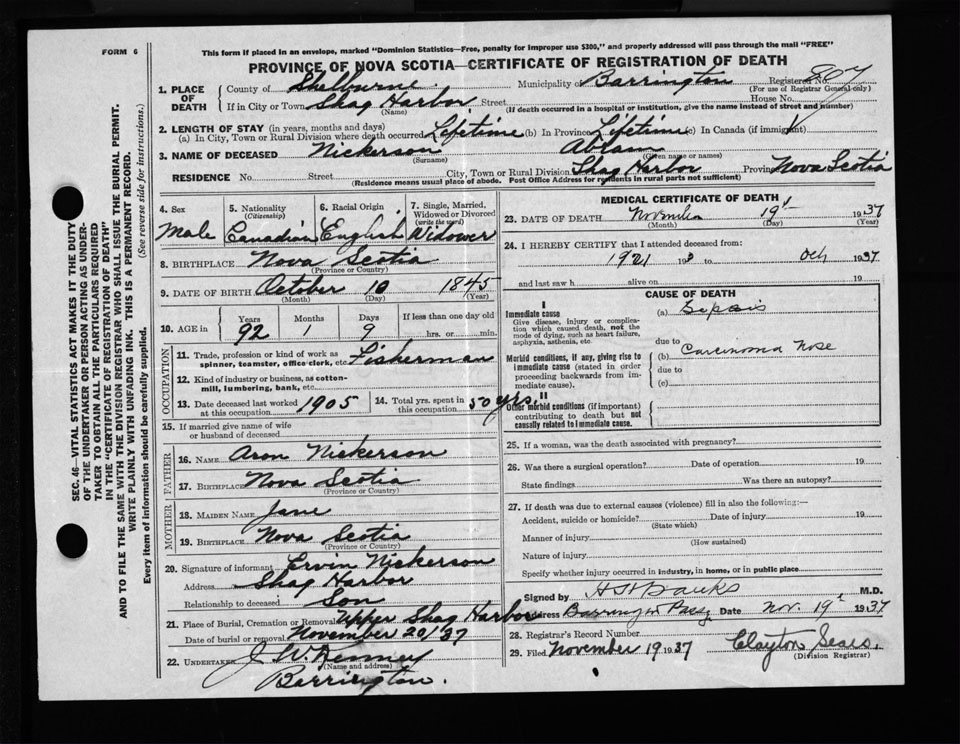 FORM 6
This form if placed in an envelope, marked "Dominion Statistics—Free, penalty for improper use $300," and properly addressed will pass through the mail "FREE"
PROVINCE OF NOVA SCOTIA—CERTIFICATE OF REGISTRATION OF DEATH
1. PLACE OF DEATH
County of Shelburne Municipality of Barrington Registered No. 807
(For use of Registrar General only)
If in City or Town Shag Harbor Street House No.
(Name) (If death occurred in a hospital or institution, give the name instead of street and number)
2. LENGTH OF STAY (in years, months and days)
(a) In City, Town or Rural Division where death occurred Lifetime (b) In Province Lifetime (c) In Canada (if immigrant)
3. NAME OF DECEASED Nickerson Abram
(Surname) (Given name or names)
RESIDENCE No. Street City, Town or Rural Division Shag Harbor Province Nova Scotia
(Residence means usual place of abode. Post Office Address for residents in rural parts not sufficient)
SEC. 46—VITAL STATISTICS ACT MAKES IT THE DUTY
OF THE UNDERTAKER OR PERSON ACTING AS UNDER-
TAKER TO OBTAIN ALL THE PARTICULARS REQUIRED
IN THE "CERTIFICATE OF REGISTRATION OF DEATH"
AND TO FILE THE SAME WITH THE DIVISION REGISTRAR WHO SHALL ISSUE THE BURIAL PERMIT.
WRITE PLAINLY WITH UNFADING INK. THIS IS A PERMANENT RECORD.
Every item of information should be carefully supplied. (See reverse side for instructions.)
4. Sex
Male
5. Nationality
(Citizenship)
Canadian
6. Racial Origin
English
7. Single, Married,
Widowed or Divorced
(write the word)
Widower
8. BIRTHPLACE Nova Scotia
(Province or Country)
9. DATE OF BIRTH October 10 1845
(Month) (Day) (Year)
10. AGE in Years Months Days If less than one day old
92 1 9 hrs. or min.
OCCUPATION
11. Trade, profession or kind of work as
spinner, teamster, office clerk, etc. Fisherman
12. Kind of industry or business, as cotton-
mill, lumbering, bank, etc.
13. Date deceased last worked
at this occupation 1905
14. Total yrs. spent in
this occupation 50 yrs.
15. If married give name of wife
or husband of deceased
FATHER
16. NAME Aron Nickerson
17. BIRTHPLACE Nova Scotia
(Province or Country)
MOTHER
18. MAIDEN NAME Jane
19. BIRTHPLACE Nova Scotia
(Province or Country)
20. Signature of informant Ervin Nickerson
Address Shag Harbor
Relationship to deceased Son
21. Place of Burial, Cremation or Removal Upper Shag Harbor
Date of burial or removal November 20/37
22. UNDERTAKER J W Kenney
(Name and address)
Barrington.
MEDICAL CERTIFICATE OF DEATH
23. DATE OF DEATH November 19 1937
(Month) (Day) (Year)
24. I HEREBY CERTIFY that I attended deceased from:
1921 193 to Oct 1937
and last saw h alive on 19
CAUSE OF DEATH
I
Immediate cause
Give disease, injury or complica-
tion which caused death, not the
mode of dying, such as heart failure,
asphyxia, asthenia, etc.
(a) Sepsis
due to
Morbid conditions, if any, giving rise to
immediate cause (stated in order
proceeding backwards from im-
mediate cause).
(b) Carcinoma Nose
due to
(c)
II
Other morbid conditions (if important)
contributing to death but not
causally related to immediate cause.
25. If a woman, was the death associated with pregnancy?
26. Was there a surgical operation? Date of operation 19
State findings Was there an autopsy?
27. If death was due to external causes (violence) fill in also the following:—
Accident, suicide or homicide? Date of injury 19
(State which)
Manner of injury
(How sustained)
Nature of injury
Specify whether injury occurred in industry, in home, or in public place
Signed by H H Banks M.D.
Address Barrington Pass. Date Nov. 19 1937
28. Registrar's Record Number
29. Filed November 19 1937 Clayton Sears.
(Division Registrar)